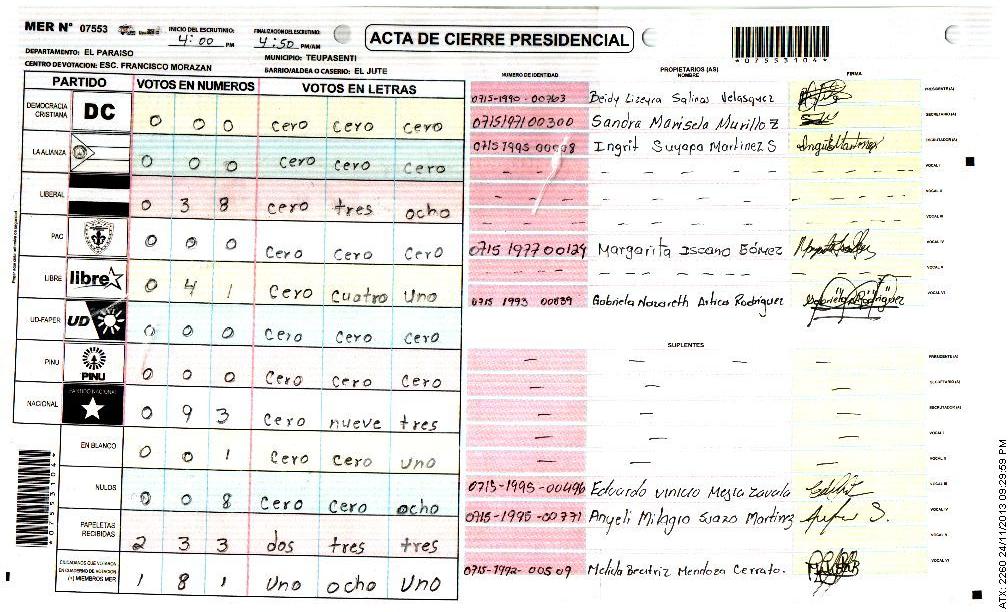 MER N° 07553
INICIO DEL ESCRUTINIO: 4:00 PM
FINALIZACION DEL ESCRUTINIO: 4:50 PM/AM
ACTA DE CIERRE PRESIDENCIAL
*07553104*
DEPARTAMENTO: EL PARAISO
MUNICIPIO: TEUPASENTI
CENTRO DE VOTACION: ESC. FRANCISCO MORAZAN
BARRIO/ALDEA O CASERIO: EL JUTE
PARTIDO VOTOS EN NUMEROS VOTOS EN LETRAS
DEMOCRACIA CRISTIANA DC 0 0 0 cero cero cero
LA ALIANZA 0 0 0 cero cero cero
LIBERAL 0 3 8 cero tres ocho
PAC 0 0 0 cero cero cero
LIBRE libre 0 4 1 cero cuatro uno
UD-FAPER UD 0 0 0 cero cero cero
PINU PINU 0 0 0 cero cero cero
NACIONAL PARTIDO NACIONAL 0 9 3 cero nueve tres
EN BLANCO 0 0 1 cero cero uno
NULOS 0 0 8 cero cero ocho
PAPELETAS RECIBIDAS 2 3 3 dos tres tres
CIUDADANOS QUE VOTARON EN CUADERNO DE VOTACION (+) MIEMBROS MER 1 8 1 uno ocho uno
*07553104*
PROPIETARIOS (AS)
NUMERO DE IDENTIDAD NOMBRE FIRMA
0715-1990-00763 Beidy Lizeyra Salinas Velasquez PRESIDENTE(A)
0715197100300 Sandra Marisela Murillo Z SECRETARIO(A)
0715 1995 Ingrit Suyapa Martinez S Ingrit Martinez ESCRUTADOR(A)
- - - - VOCAL I
- - - - VOCAL II
- - - - VOCAL III
0715 1977 00124 Margarita Iscano Gómez VOCAL IV
- - - - VOCAL V
0715 1993 00839 Gabriela Nazareth Artica Rodriguez Gabriela Rodriguez VOCAL VI
SUPLENTES
- - - - PRESIDENTE(A)
- - - SECRETARIO(A)
- - - ESCRUTADOR(A)
- - - VOCAL I
- - - VOCAL II
0715-1995-00496 Eduardo Vinicio Mejia Zavala VOCAL III
0715-1995-00771 Anyeli Milagro Suazo Martinez VOCAL IV
VOCAL V
0715-1992-00509 Melida Beatriz Mendoza Cerrato. VOCAL VI
ATX: 2260 24/11/2013 09:29:59 PM